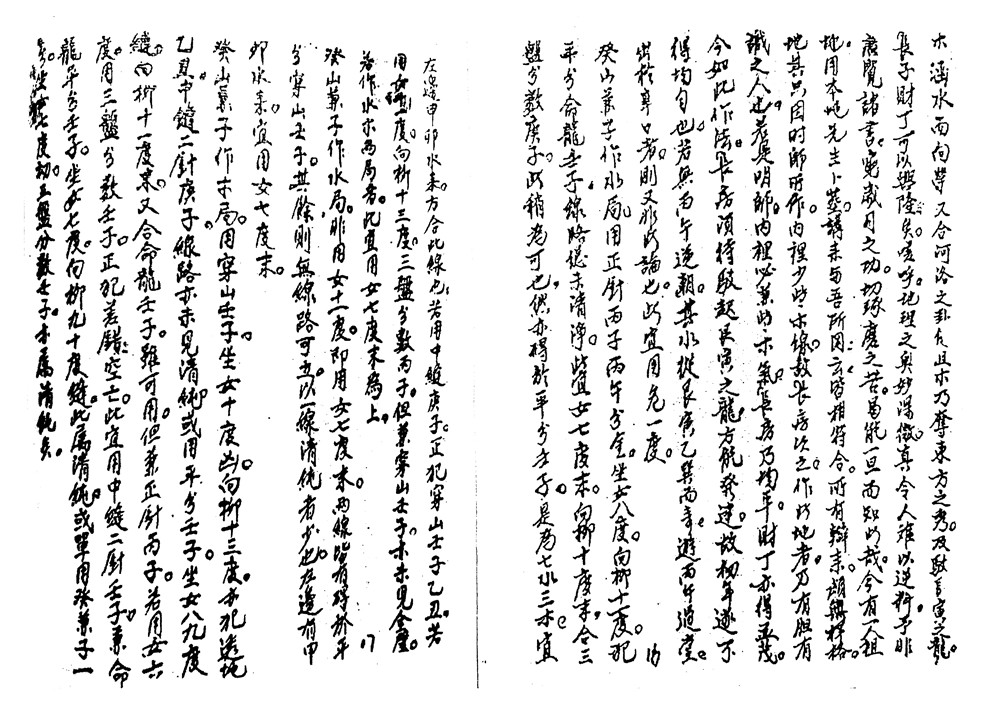 木涵水而向营又合河洛之卦气且木乃奪東方之秀及艮寅之龍
長子財丁可以興隆矣嗟呼地理之奥妙深微真令人难以逆料予非
廣覽諸書寛歲月之功切琢磨之苦曷能一旦而知此哉今有一人祖
地用本地先生卜葬講来与吾所図云皆相符合所有辯来朝
地其只因时師所作内裡少些木線故長房次之作此地者乃有胆有
識之人也若是明師内裡必葉些木氣長房乃均平財丁亦得
今如此作法長房須待啟起艮寅之龍方能發達故初年遂不
得均匀也若無丙午逆朝其水從艮寅乙巽而去遊丙午過堂
出於辛口者則又非此論也此宜用危一度
癸山兼子作水局用正針丙子丙午分金坐女八度向柳十一度犯
平分命龍壬子線路從未清淨此宜女七度末向柳十度末合三
盤分数庚子此稍為可也俱亦碍於平分壬子是為七水三木宜
左邊甲卯水来方合此線也若用中縫庚子正犯穿山壬子乙丑若
用女一度向柳十三度三盤分数丙子但兼穿山壬子亦未見全
若作水木两局者此宜用女七度末為上
癸山兼子作水局非用女十一度即用女七度末两線路有碍於平
分穿山壬子其餘則無線路可立以一線清純者少也左邊有甲
卯水来宜用女七度末
癸山兼子作木局用穿山壬子坐女十度凶向柳十三度亦犯透地
乙丑中縫二針庚子線路亦未見清純或用平分壬子坐女八九度
縫向柳十一度末又合命龍壬子雖可用但兼正針丙子若用女六
度用三盤分数壬子正犯差錯空亡此宜用中縫二針壬子兼命
龍平分壬子坐女七度向柳九十度縫此属清純或單用癸兼子一
線坐女七度初三盤分数壬子亦属清純矣